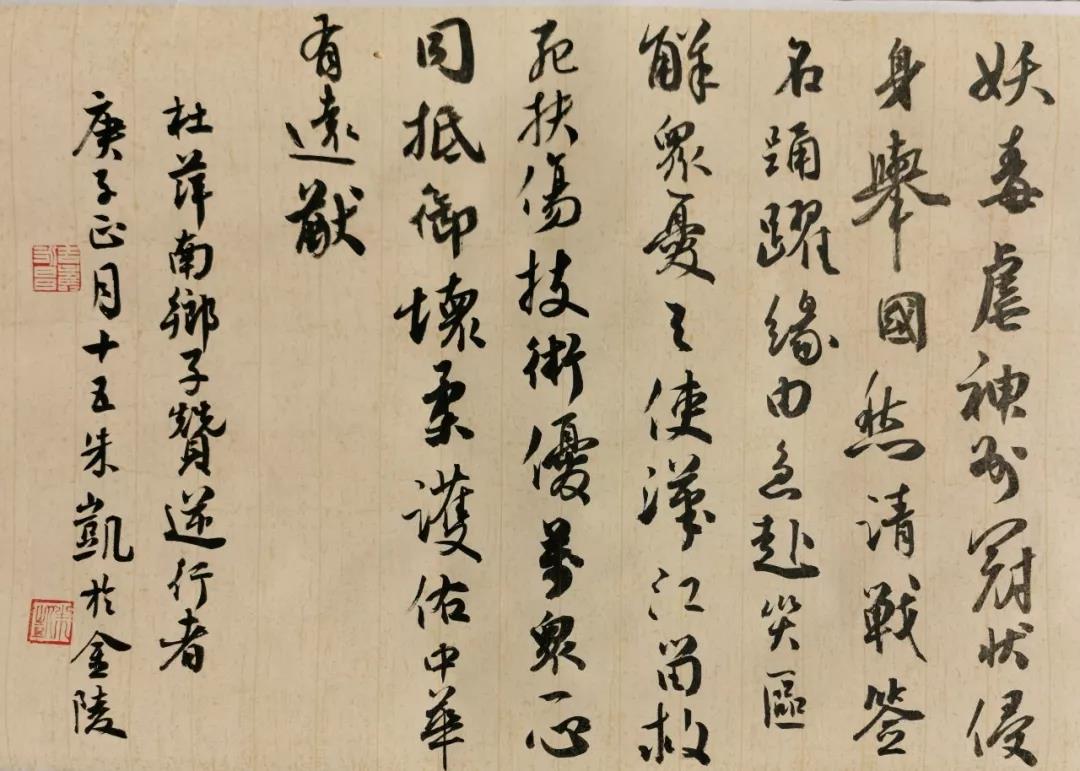 妖毒虐神州冠狀侵
身舉國愁請戰簽
名踊躍緣由急赴災區
解眾憂天使漢江留救
死扶傷技術優萬眾一心
同抵御懷柔護佑中華
有遠猷
杜萍南鄉子贊逆行者
庚子正月十五朱凱於金陵